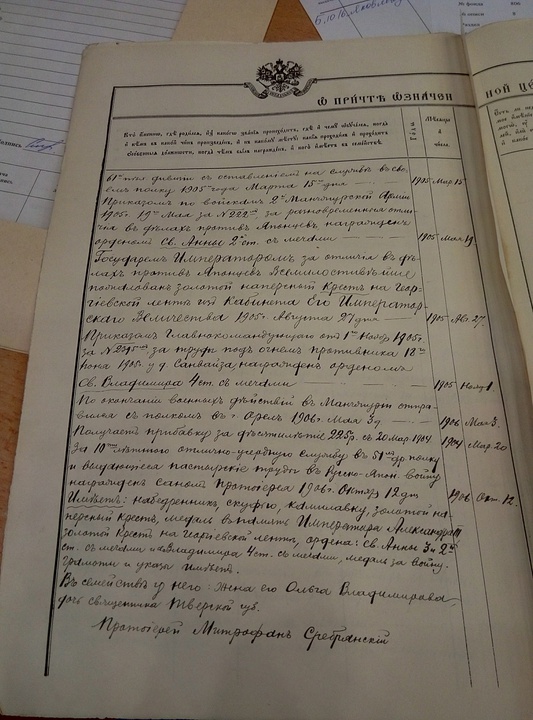 Ѿ ПРИЧТѢ ѠЗНАЧЕН
НОЙ ЦЕ
Кто именно, гдѣ родился, изъ какого званія происходитъ, гдѣ и чему обучался, когда
и кѣмъ въ какой чинъ произведенъ, и на какомъ мѣстѣ какія проходилъ и проходитъ
должности, когда чѣмъ былъ награжденъ, и кого имѣетъ въ семействѣ.
Года
Мѣсяца и числа
61й дивизіи съ оставленіемъ на службѣ въ сво-
емъ полку 1905 года Марта 15 дня 1905 Мар. 15
Приказомъ по войскамъ 2й Манчжурской Арміи
1905 г. 19го Мая за № 222, за разновременныя отли-
чія въ дѣлахъ противъ Японцевъ, награжденъ
орденомъ Св. Анны 2й ст. съ мечами 1905 Мая 19
Государемъ Императоромъ за отличія въ дѣ-
лахъ противъ Японцевъ Всемилостивѣйше
пожалованъ золотой наперсный крестъ на Геор-
гіевской лентѣ изъ Кабинета Его Император-
скаго Величества 1905 г. Августа 27 дня 1905 Авг. 27.
Приказомъ Главнокомандующаго отъ 1го Нояб. 1905 г.
за № за труды подъ огнемъ противника 18го
Іюня 1905 г. у д. Санвайза, награжденъ орденомъ
Св. Владимира 4 ст. съ мечами 1905 Нояб. 1
По окончаніи военныхъ дѣйствій въ Манчжуріи отпра-
вился съ полкомъ въ г. Орелъ 1906 г. Мая 3 д. 1906 Мая 3.
Получаетъ прибавку за десятилѣтіе 225 р. съ 20 мар. 1904 1904 Мар. 20
За 10тилѣтнюю отлично-усердную службу въ 51 др. полку
и выдающіеся пастырскіе труды въ Русско-Япон. войну
награжденъ Саномъ Протоіерея 1906 г. Октяб. 12 дня 1906 Окт. 12.
Имѣетъ: набедренникъ, скуфію, камилавку, золотой на-
персный крестъ, медаль въ память Императора Александра III
золотой Крестъ на Георгіевской лентѣ, ордена: Св. Анны 3 и 2й
ст. съ мечами и Владимира 4 ст. съ мечами, медаль за войну.
грамоты и указа имѣетъ.
Въ семействѣ у него: жена его Ольга Владимирова,
дочь священника Тверской губ.
Протоіерей Митрофанъ Сребрянскій